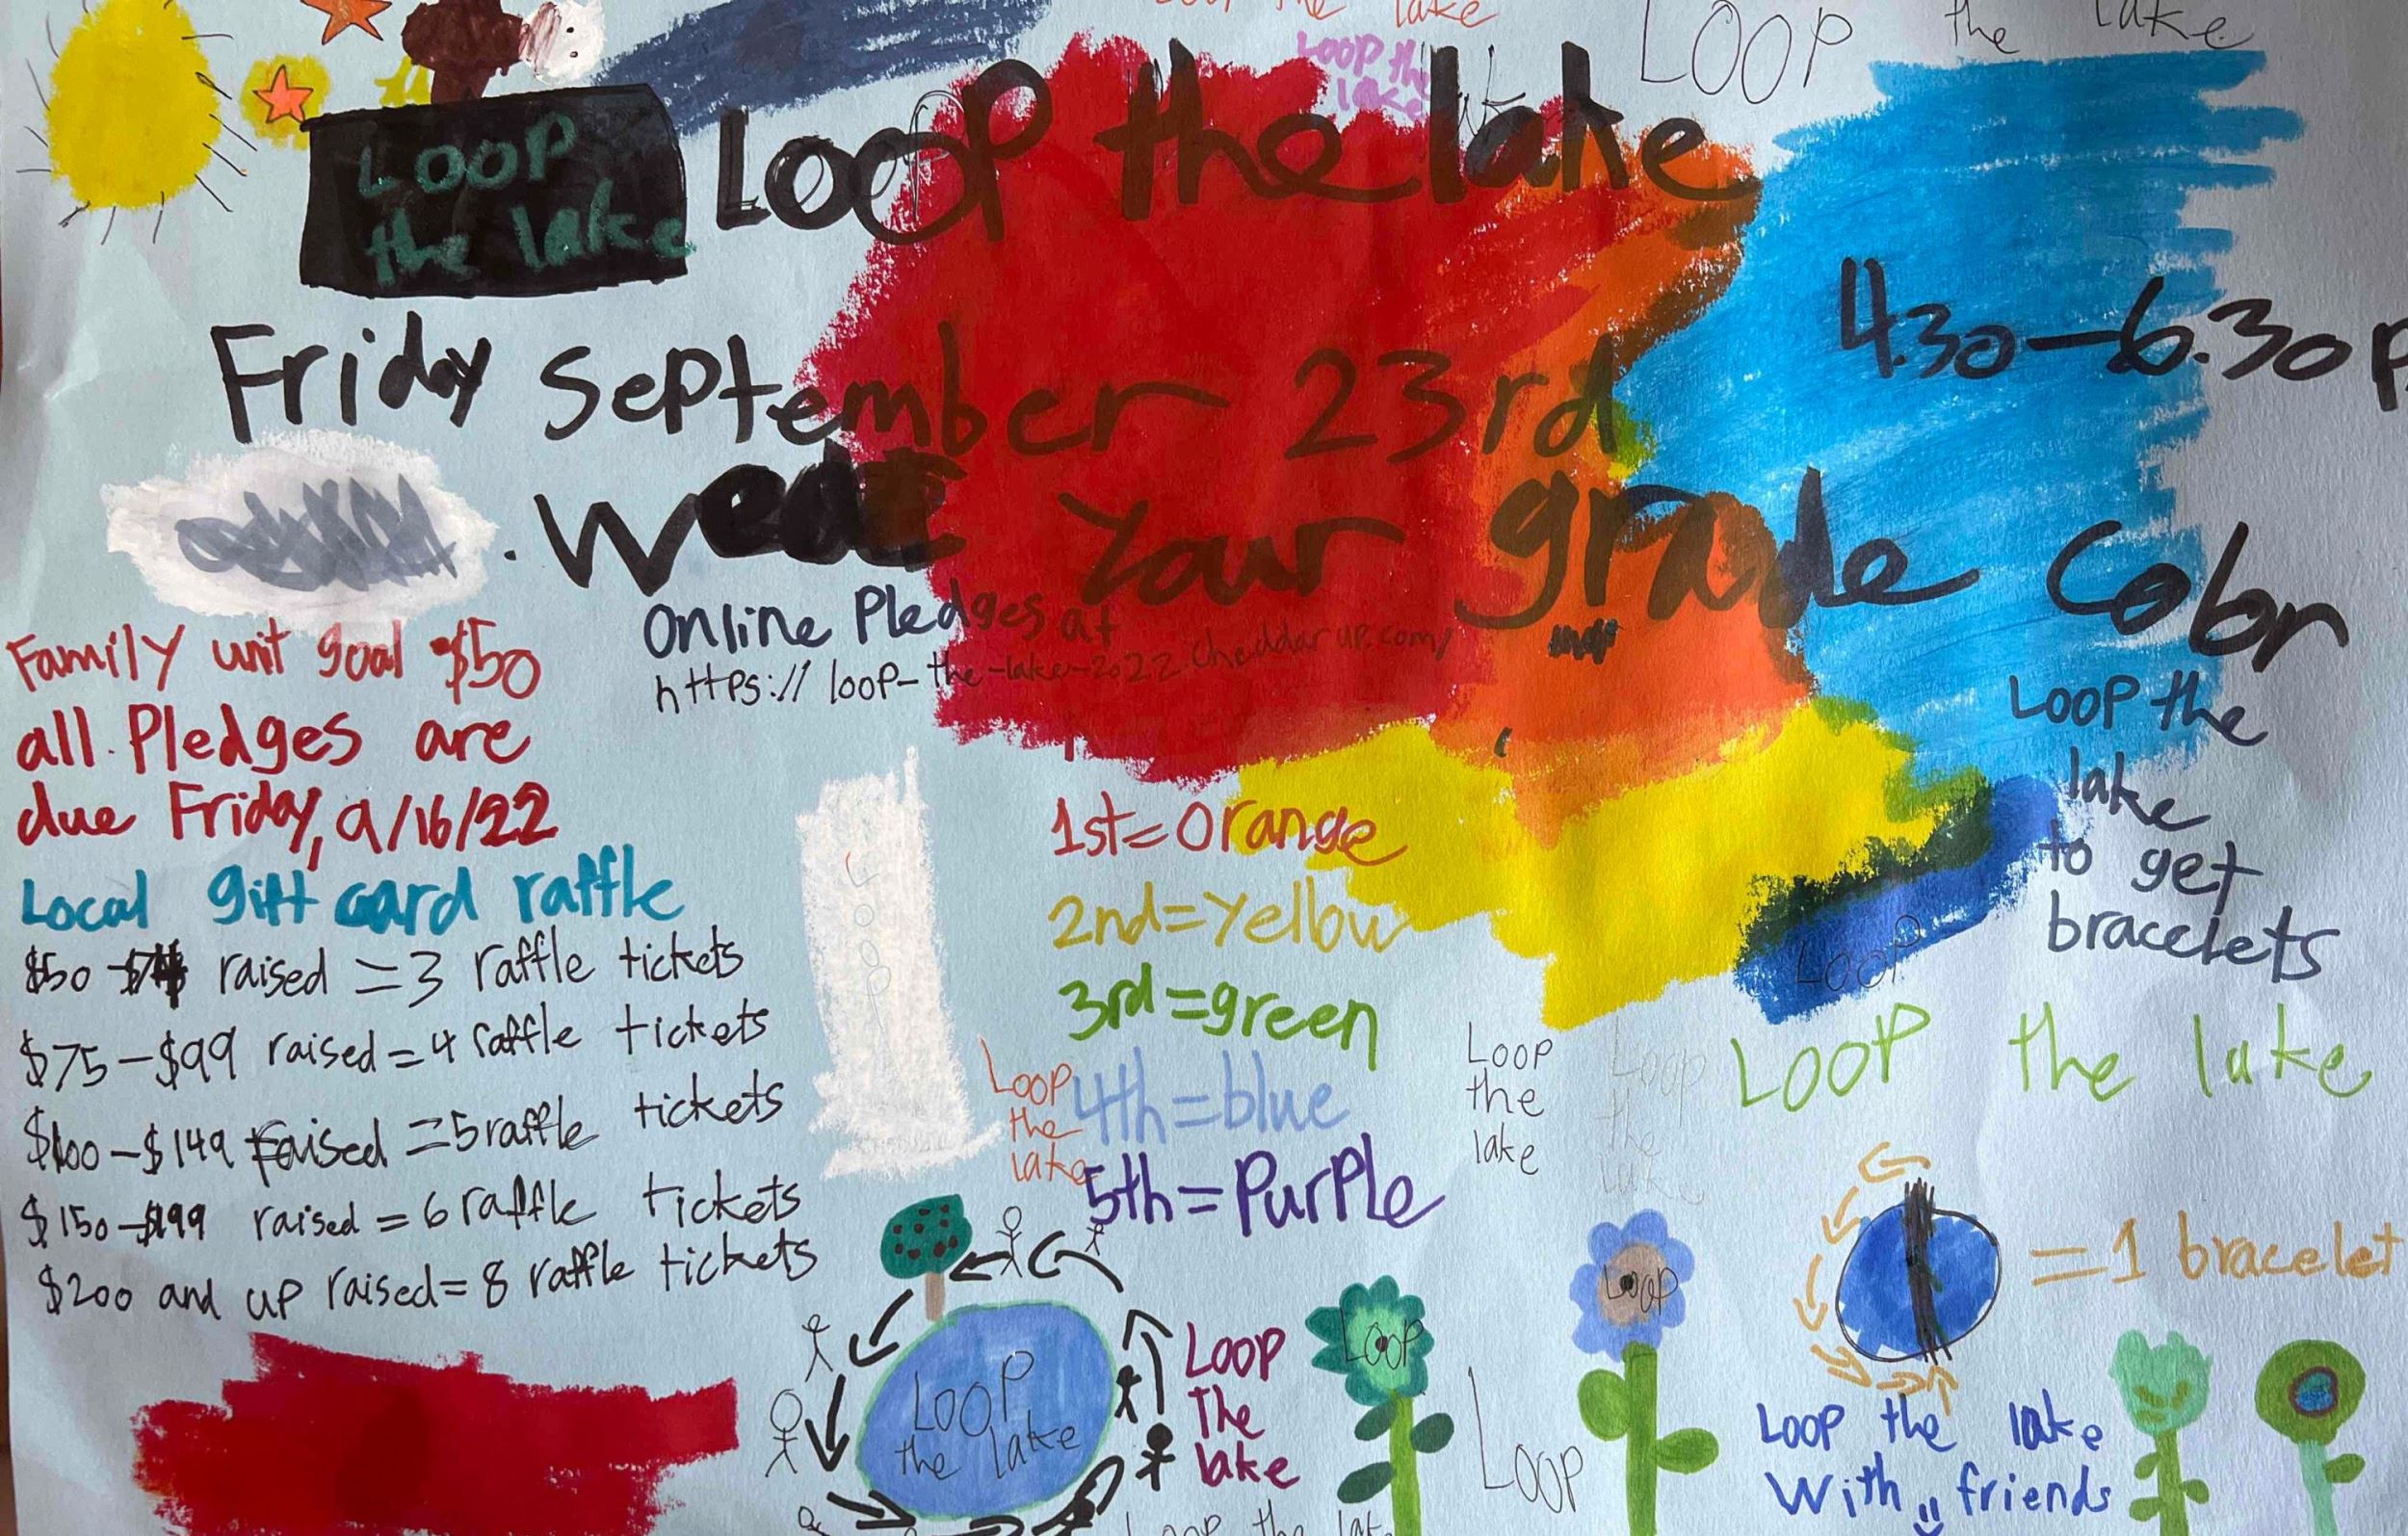 Loop the lake
Loop the lake
Loop the lake
Loop the lake
Loop the lake
Friday September 23rd
4:30-6:30 P
. Wear Your grade Color
Online Pledges at
https://loop-the-lake-2022.cheddarup.com/
Family unit goal $50
all Pledges are
due Friday, 9/16/22
Local gift card raffle
$50 - raised = 3 raffle tickets
$75-$99 raised = 4 raffle tickets
$100-$149 raised = 5 raffle tickets
$150-$199 raised = 6 raffle tickets
$200 and up raised = 8 raffle tickets
LOOP
1st=Orange
2nd=Yellow
3rd=green
4th=blue
5th=Purple
Loop
the
lake
Loop the
lake
to get
bracelets
LOOP
Loop
the
lake
Loop
the
lake
LOOP the lake
=1 bracelet
LOOP
the lake
Loop
The
lake
LOOP
Loop
Loop
Loop the lake
With friends
Loop the lak